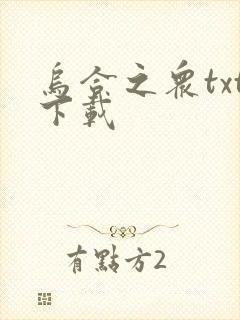 烏合之衆txt
下載
有點方2